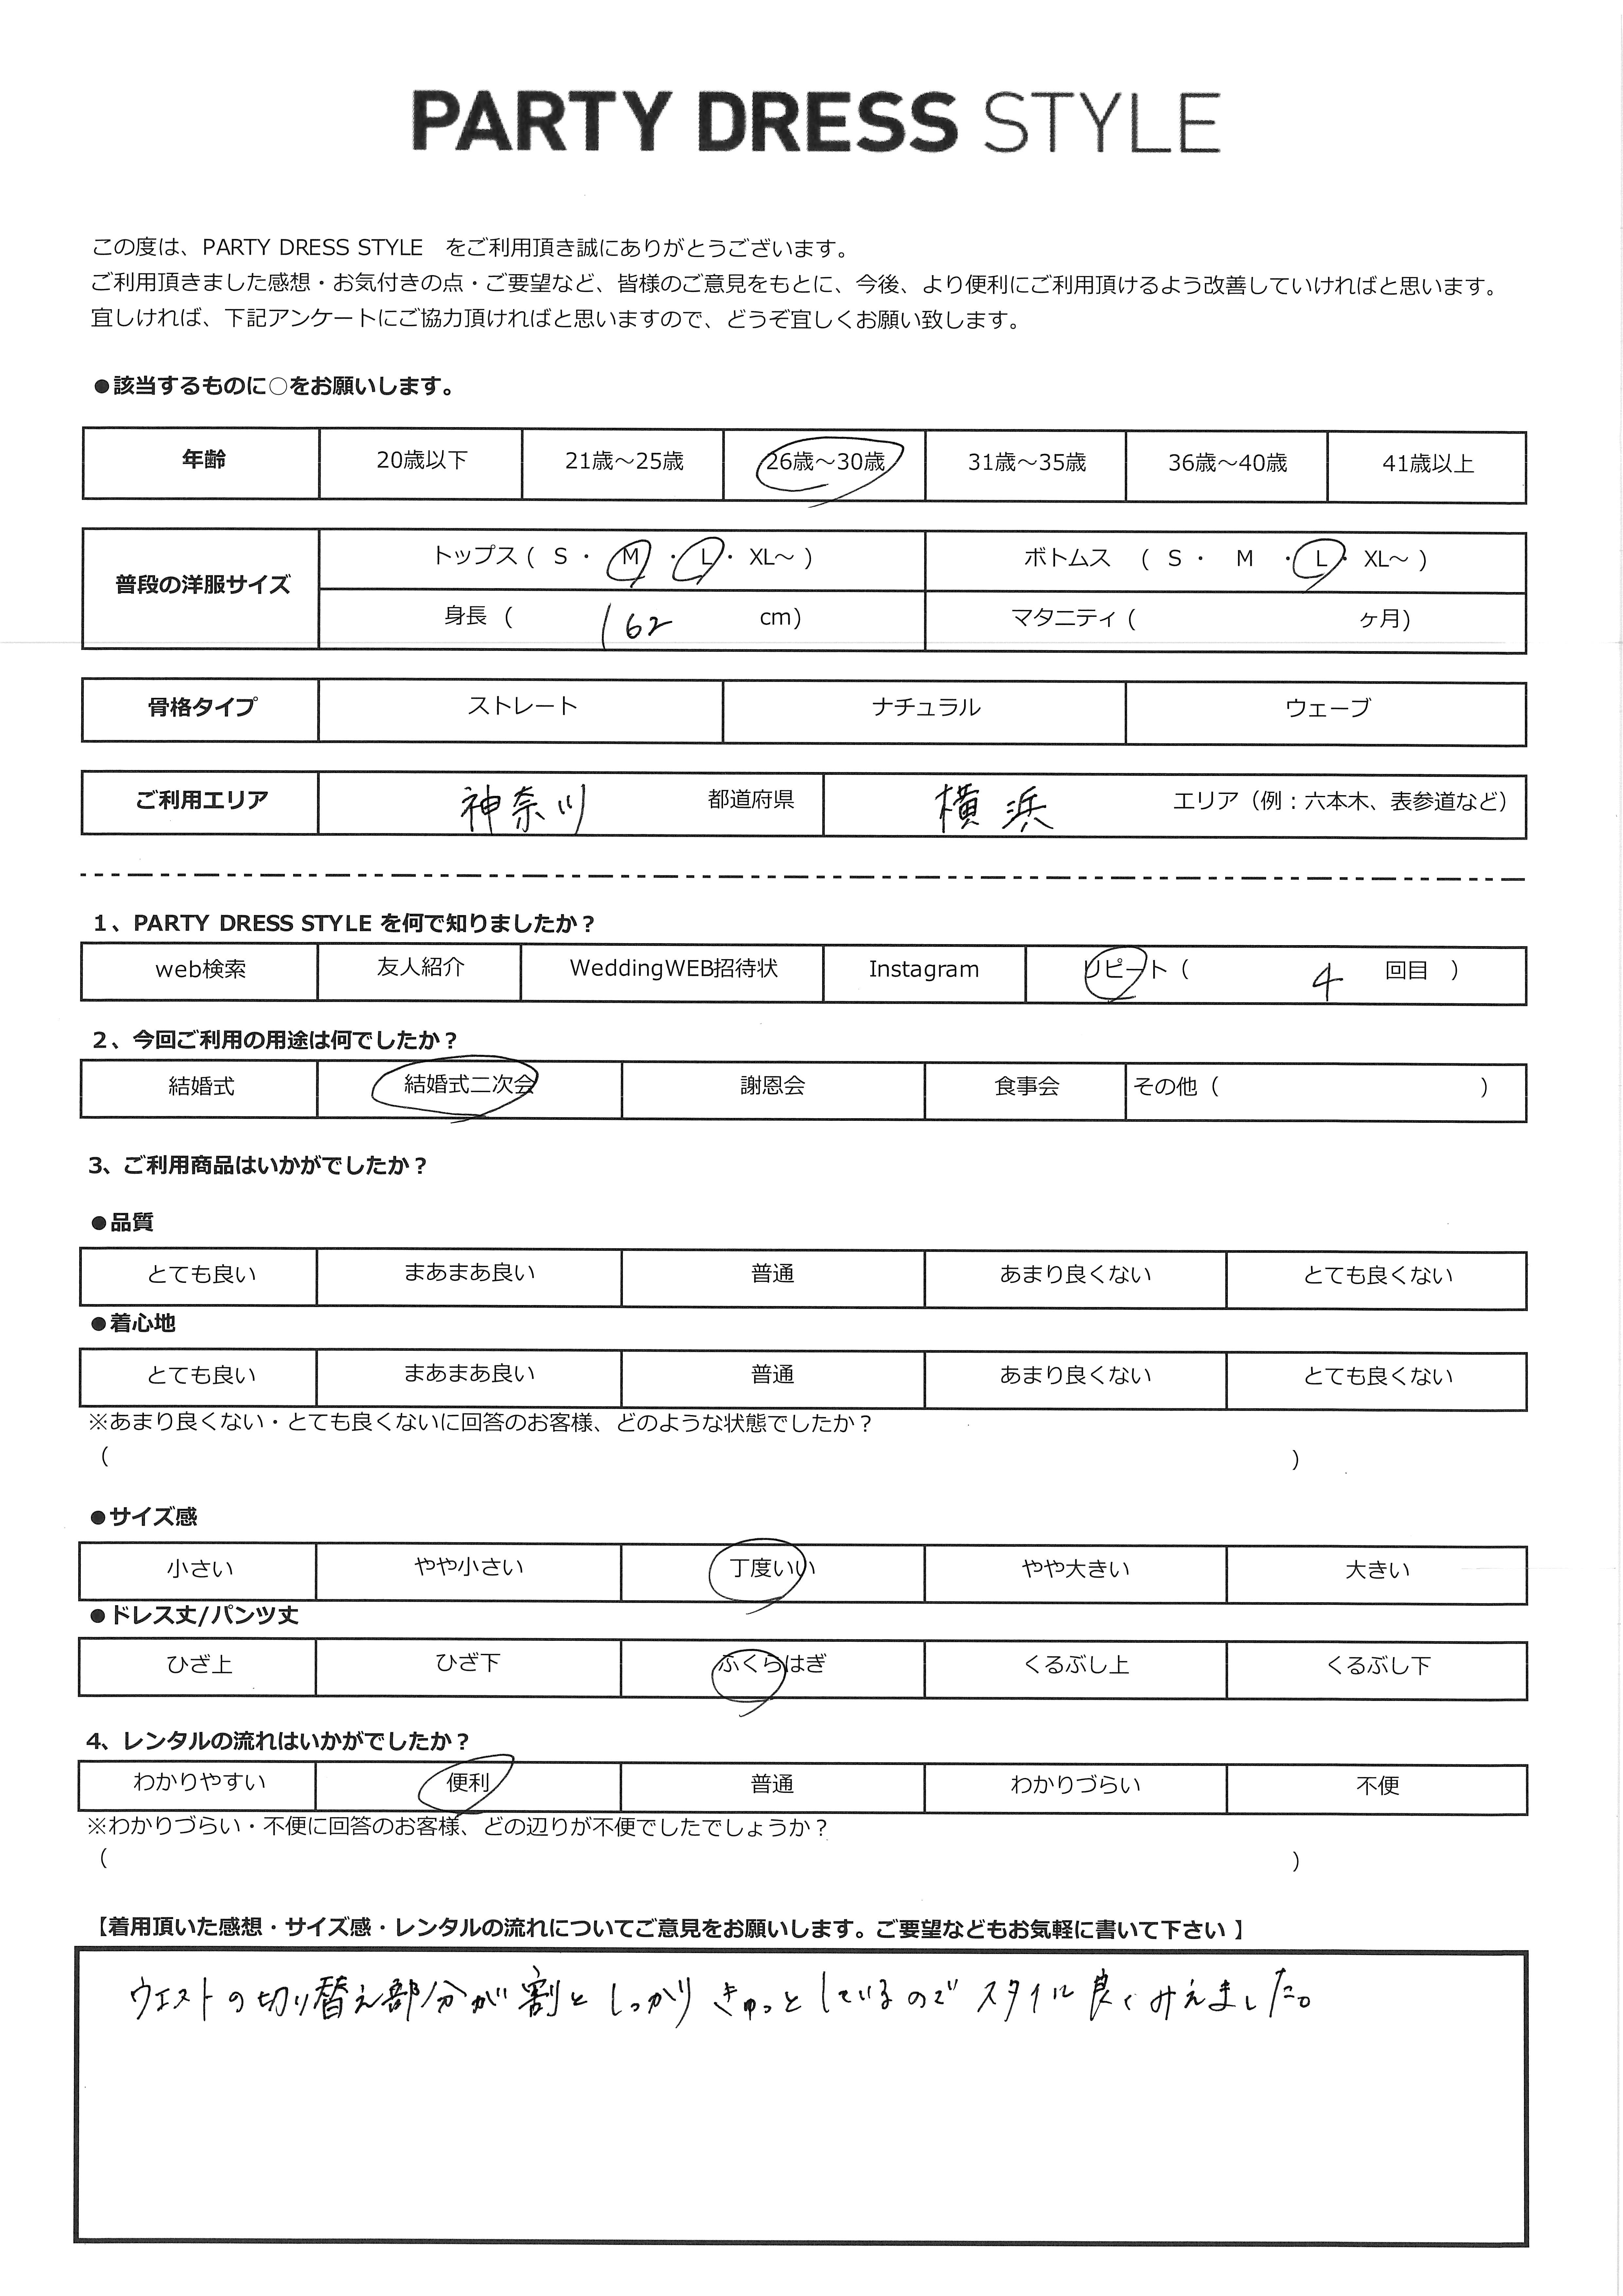 PARTY DRESS STYLE
この度は、PARTY DRESS STYLE をご利用頂き誠にありがとうございます。
ご利用頂きました感想・お気付きの点・ご要望など、皆様のご意見をもとに、今後、より便利にご利用頂けるよう改善していければと思います。
宜しければ、下記アンケートにご協力頂ければと思いますので、どうぞ宜しくお願い致します。
●該当するものに○をお願いします。
年齢 20歳以下 21歳～25歳 26歳～30歳 31歳～35歳 36歳～40歳 41歳以上
普段の洋服サイズ
トップス ( S ・ M ・ L ・ XL～ ) ボトムス ( S ・ M ・ L ・ XL～ )
身長 ( 162 cm) マタニティ ( ヶ月)
骨格タイプ ストレート ナチュラル ウェーブ
ご利用エリア 神奈川 都道府県 横浜 エリア（例：六本木、表参道など）
1、PARTY DRESS STYLE を何で知りましたか？
web検索 友人紹介 WeddingWEB招待状 Instagram リピート（ 4 回目 ）
2、今回ご利用の用途は何でしたか？
結婚式 結婚式二次会 謝恩会 食事会 その他（ ）
3、ご利用商品はいかがでしたか？
●品質
とても良い まあまあ良い 普通 あまり良くない とても良くない
●着心地
とても良い まあまあ良い 普通 あまり良くない とても良くない
※あまり良くない・とても良くないに回答のお客様、どのような状態でしたか？
（ ）
●サイズ感
小さい やや小さい 丁度いい やや大きい 大きい
●ドレス丈/パンツ丈
ひざ上 ひざ下 ふくらはぎ くるぶし上 くるぶし下
4、レンタルの流れはいかがでしたか？
わかりやすい 便利 普通 わかりづらい 不便
※わかりづらい・不便に回答のお客様、どの辺りが不便でしたでしょうか？
（ ）
【着用頂いた感想・サイズ感・レンタルの流れについてご意見をお願いします。ご要望などもお気軽に書いて下さい 】
ウエストの切り替え部分が割としっかりきゅっとしているのでスタイル良くみえました。